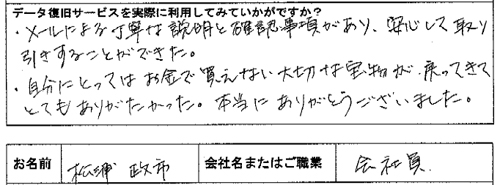 データ復旧サービスを実際に利用してみていかがですか?
・メールによる丁寧な説明と確認事項があり、安心して取り
引きすることができた。
・自分にとってはお金で買えない大切な宝物が、戻ってきて
とてもありがたかった。本当にありがとうございました。
お名前 松浦 政市 会社名またはご職業 会社員